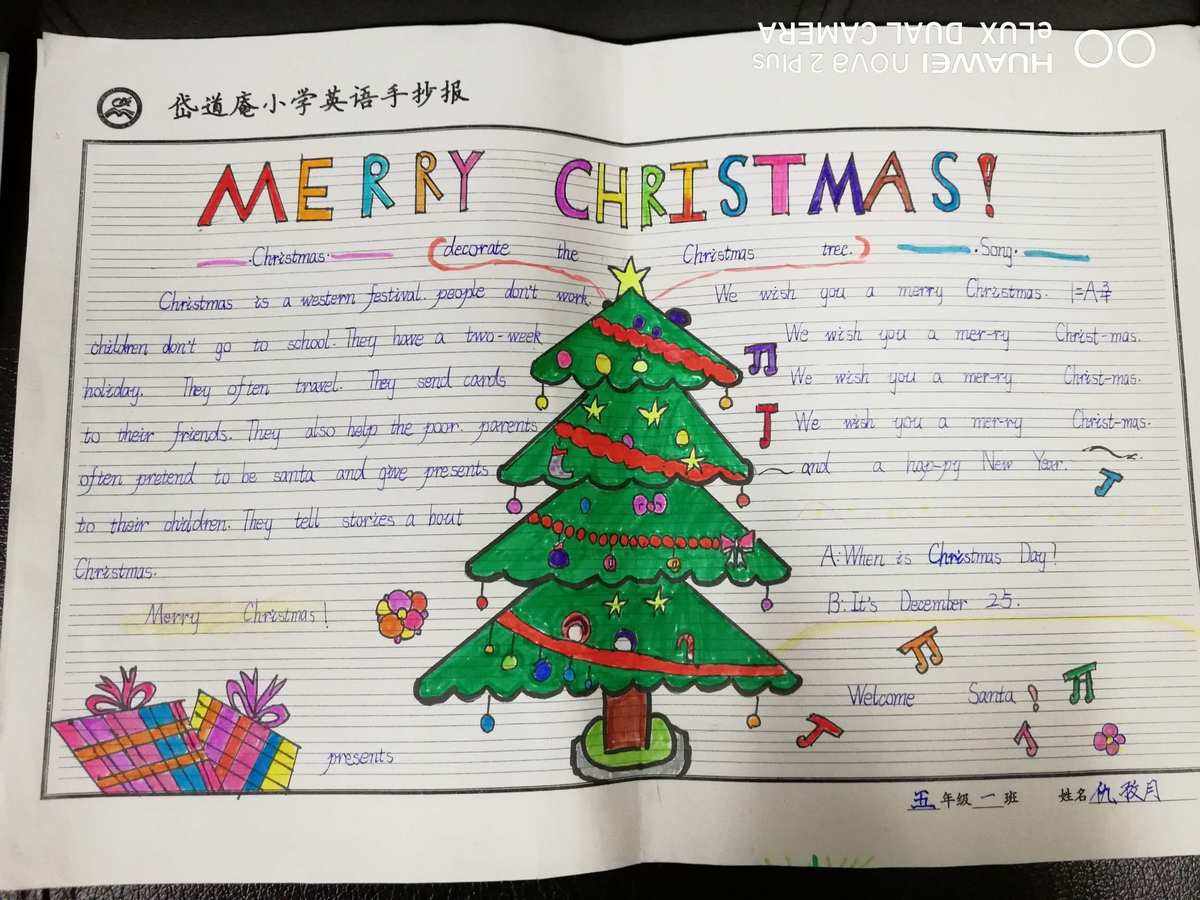 HUAWEI nova 2 Plus
eLUX DUAL CAMERA
岱道庵小学英语手抄报
MERRY CHRISTMAS!
·Christmas·
decorate the Christmas tree.
·Song·
Christmas is a western festival. people don't work.
children don't go to school. They have a two-week
holiday. They often travel. They send cards
to their friends. They also help the poor. parents
often pretend to be santa and give presents
to their children. They tell stories a bout
Christmas.
Merry Christmas!
presents
We wish you a merry Christmas. 1=A 3/4
We wish you a mer-ry Christ-mas.
We wish you a mer-ry Christ-mas.
We wish you a mer-ry Christ-mas.
and a hap-py New Year.
A: When is Christmas Day?
B: It's December 25.
Welcome Santa!
五年级一班 姓名 仇玫月